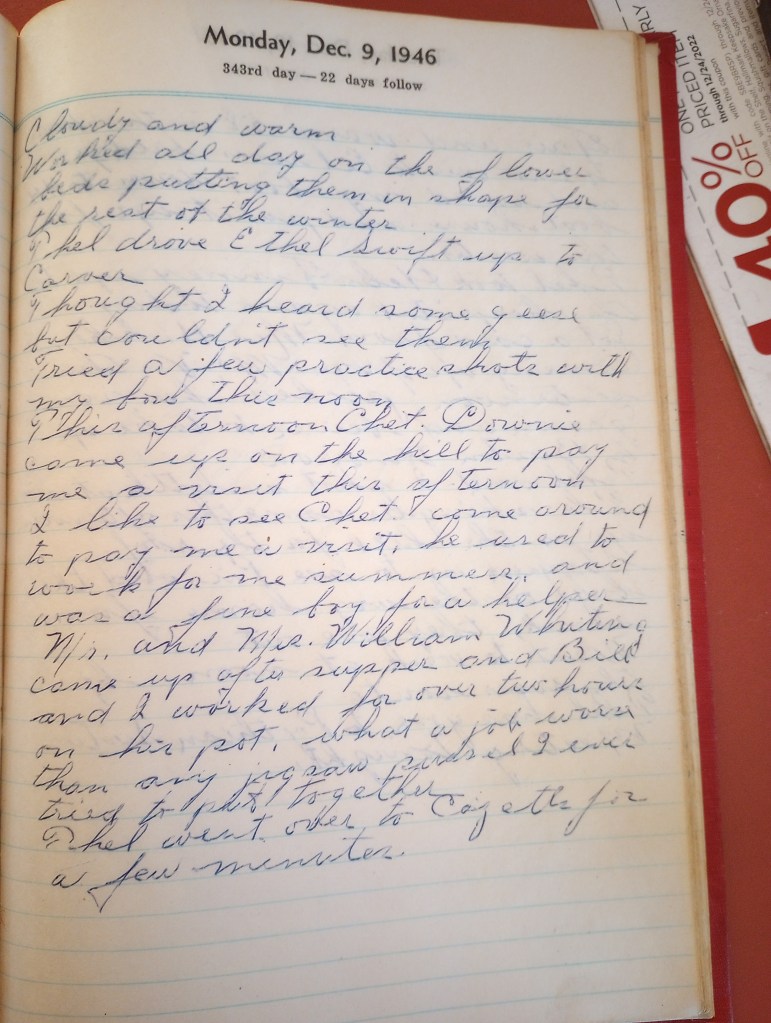 Monday, Dec. 9, 1946
343rd day — 22 days follow
Cloudy and warm
Worked all day on the flower
beds putting them in shape for
the rest of the winter
Thel drove Ethel Swift up to
Carver
Thought I heard some geese
but couldn't see them
Tried a few practice shots with
my bow this noon
This afternoon Chet. Downie
came up on the hill to pay
me a visit this afternoon
I like to see Chet. come around
to pay me a visit, he used to
work for me summers, and
was a fine boy for a helper
Mr. and Mrs. William Whiting
came up after supper and Bill
and I worked for over two hours
on his pot, what a job worse
than any jigsaw I ever
tried to put together
Thel went over to for
a few minutes.
PRICED ITEM
through 12/24/2022
with this coupon
40%
OFF